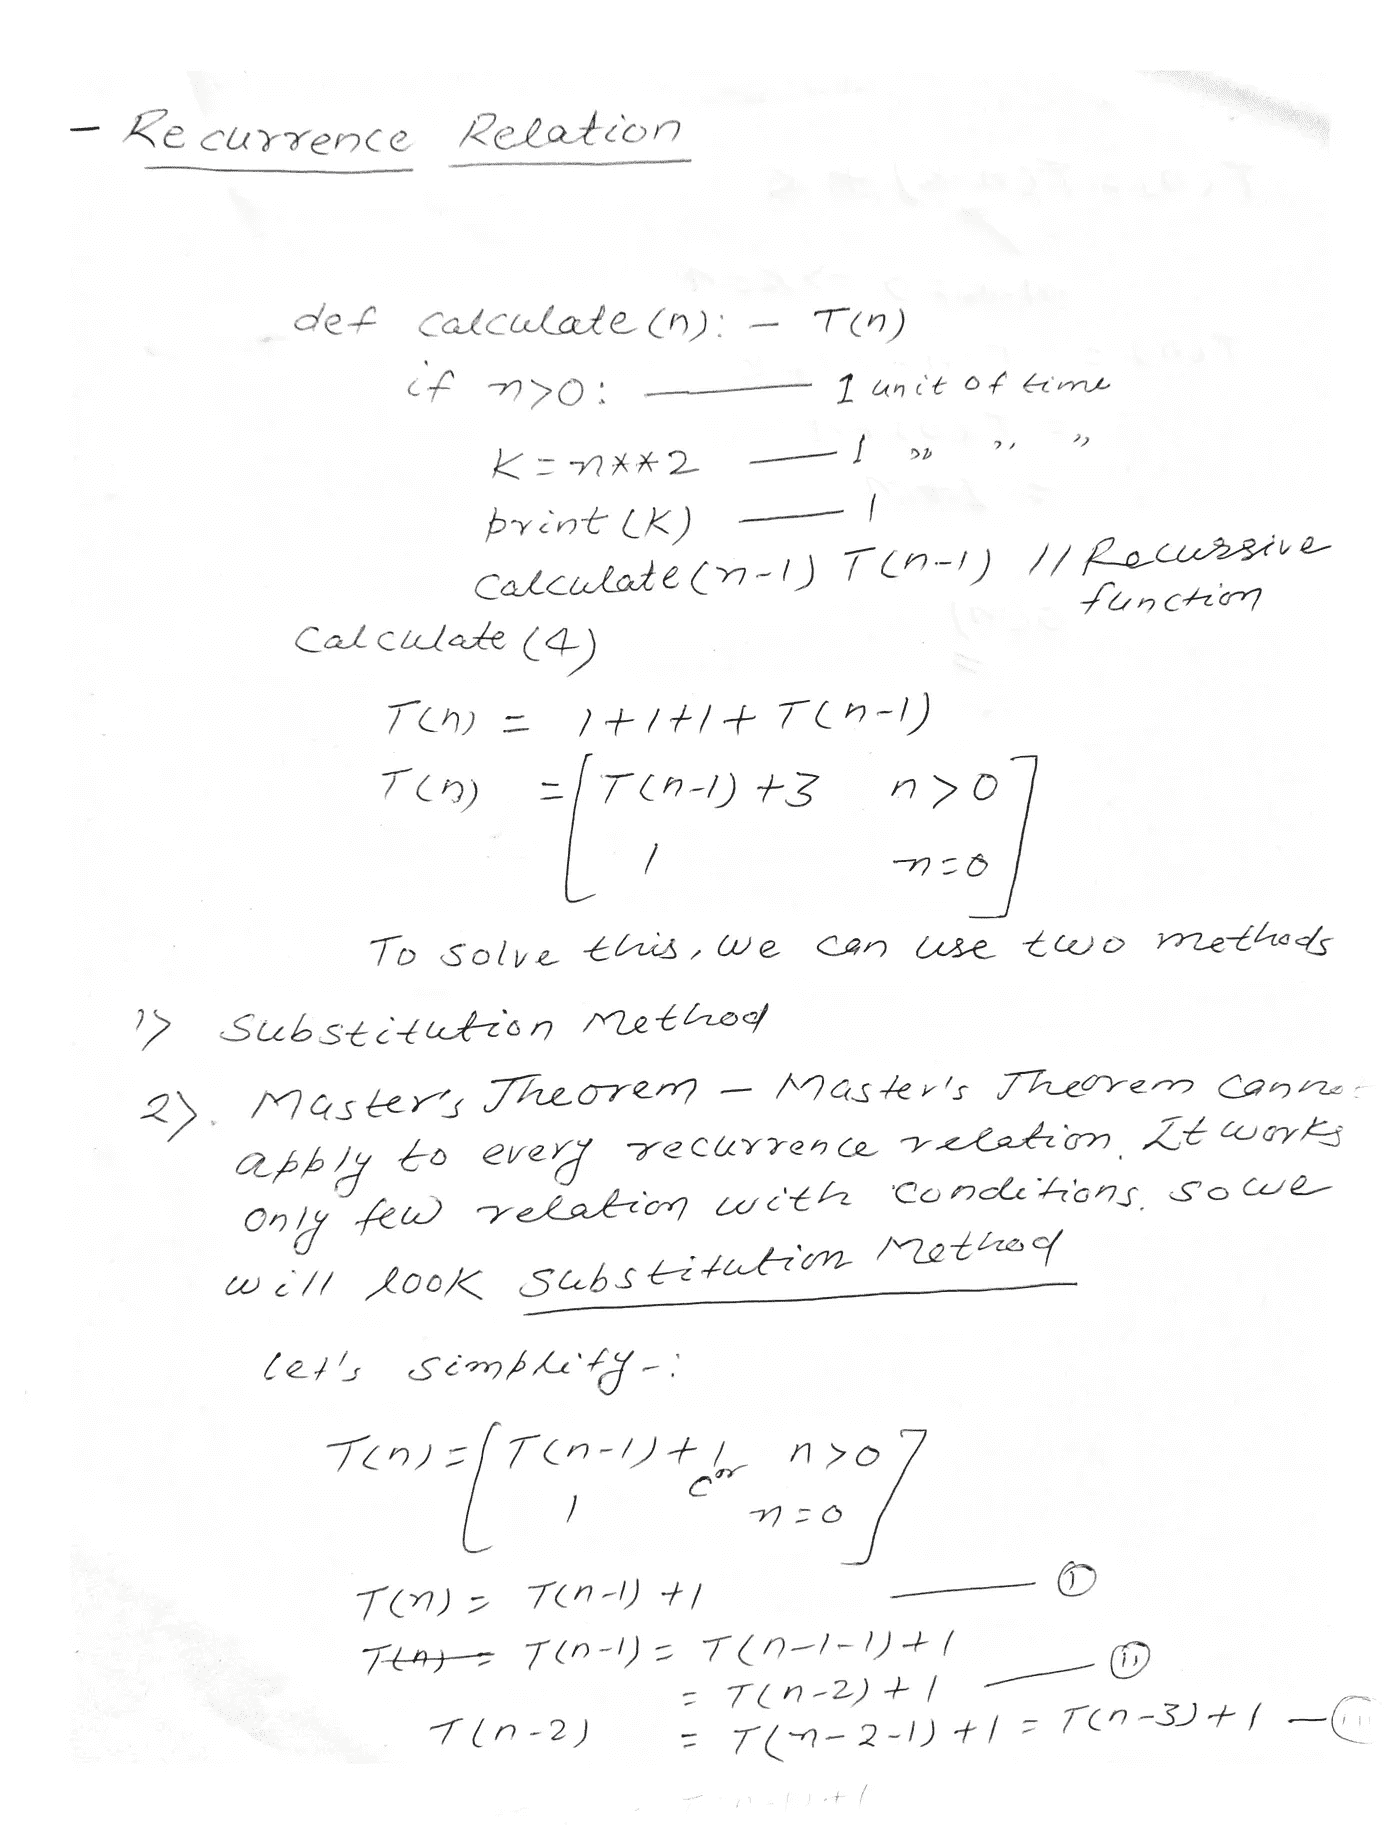 - Recurrence Relation
def calculate(n): - T(n)
if n>0: — 1 unit of time
K=n**2 — 1 " " "
print(K) — 1
calculate(n-1) T(n-1) // Recursive
function
calculate(4)
T(n) = 1+1+1+T(n-1)
T(n) = [T(n-1)+3 n>0
1 n=0]
To solve this, we can use two methods
1> Substitution Method
2>. Master's Theorem - Master's Theorem
apply to every recurrence relation. It works
only few relation with conditions. so we
will look Substitution Method
let's simplify-:
T(n)=[T(n-1)+1 or C n>0
1 n=0]
T(n) = T(n-1)+1 — (i)
T(n) = T(n-1) = T(n-1-1)+1
= T(n-2)+1 — (ii)
T(n-2) = T(n-2-1)+1 = T(n-3)+1 — (iii)